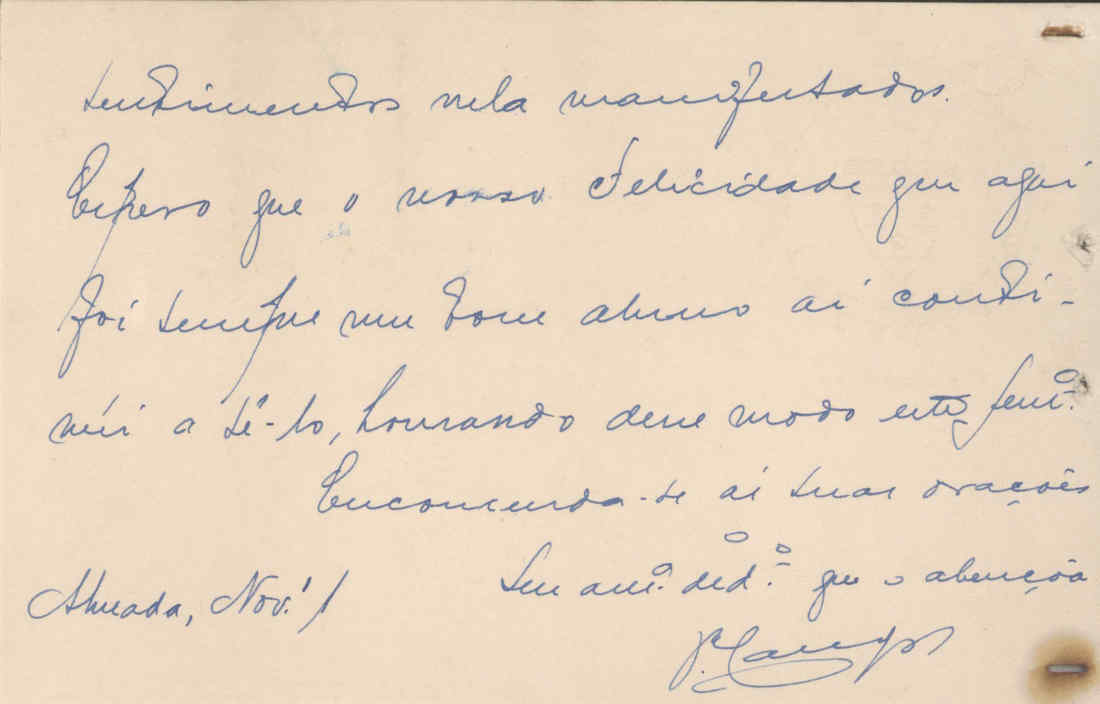 sentimentos nela manifestados.
Espero que o nosso Felicidade que aqui
foi sempre um bom aluno aí conti-
núi a sê-lo, honrando desse modo este Sem.º
Encomenda-se ás suas orações
Seu am.º ded.º que o abençôa
Almada, Nov.º 1
P. Campos